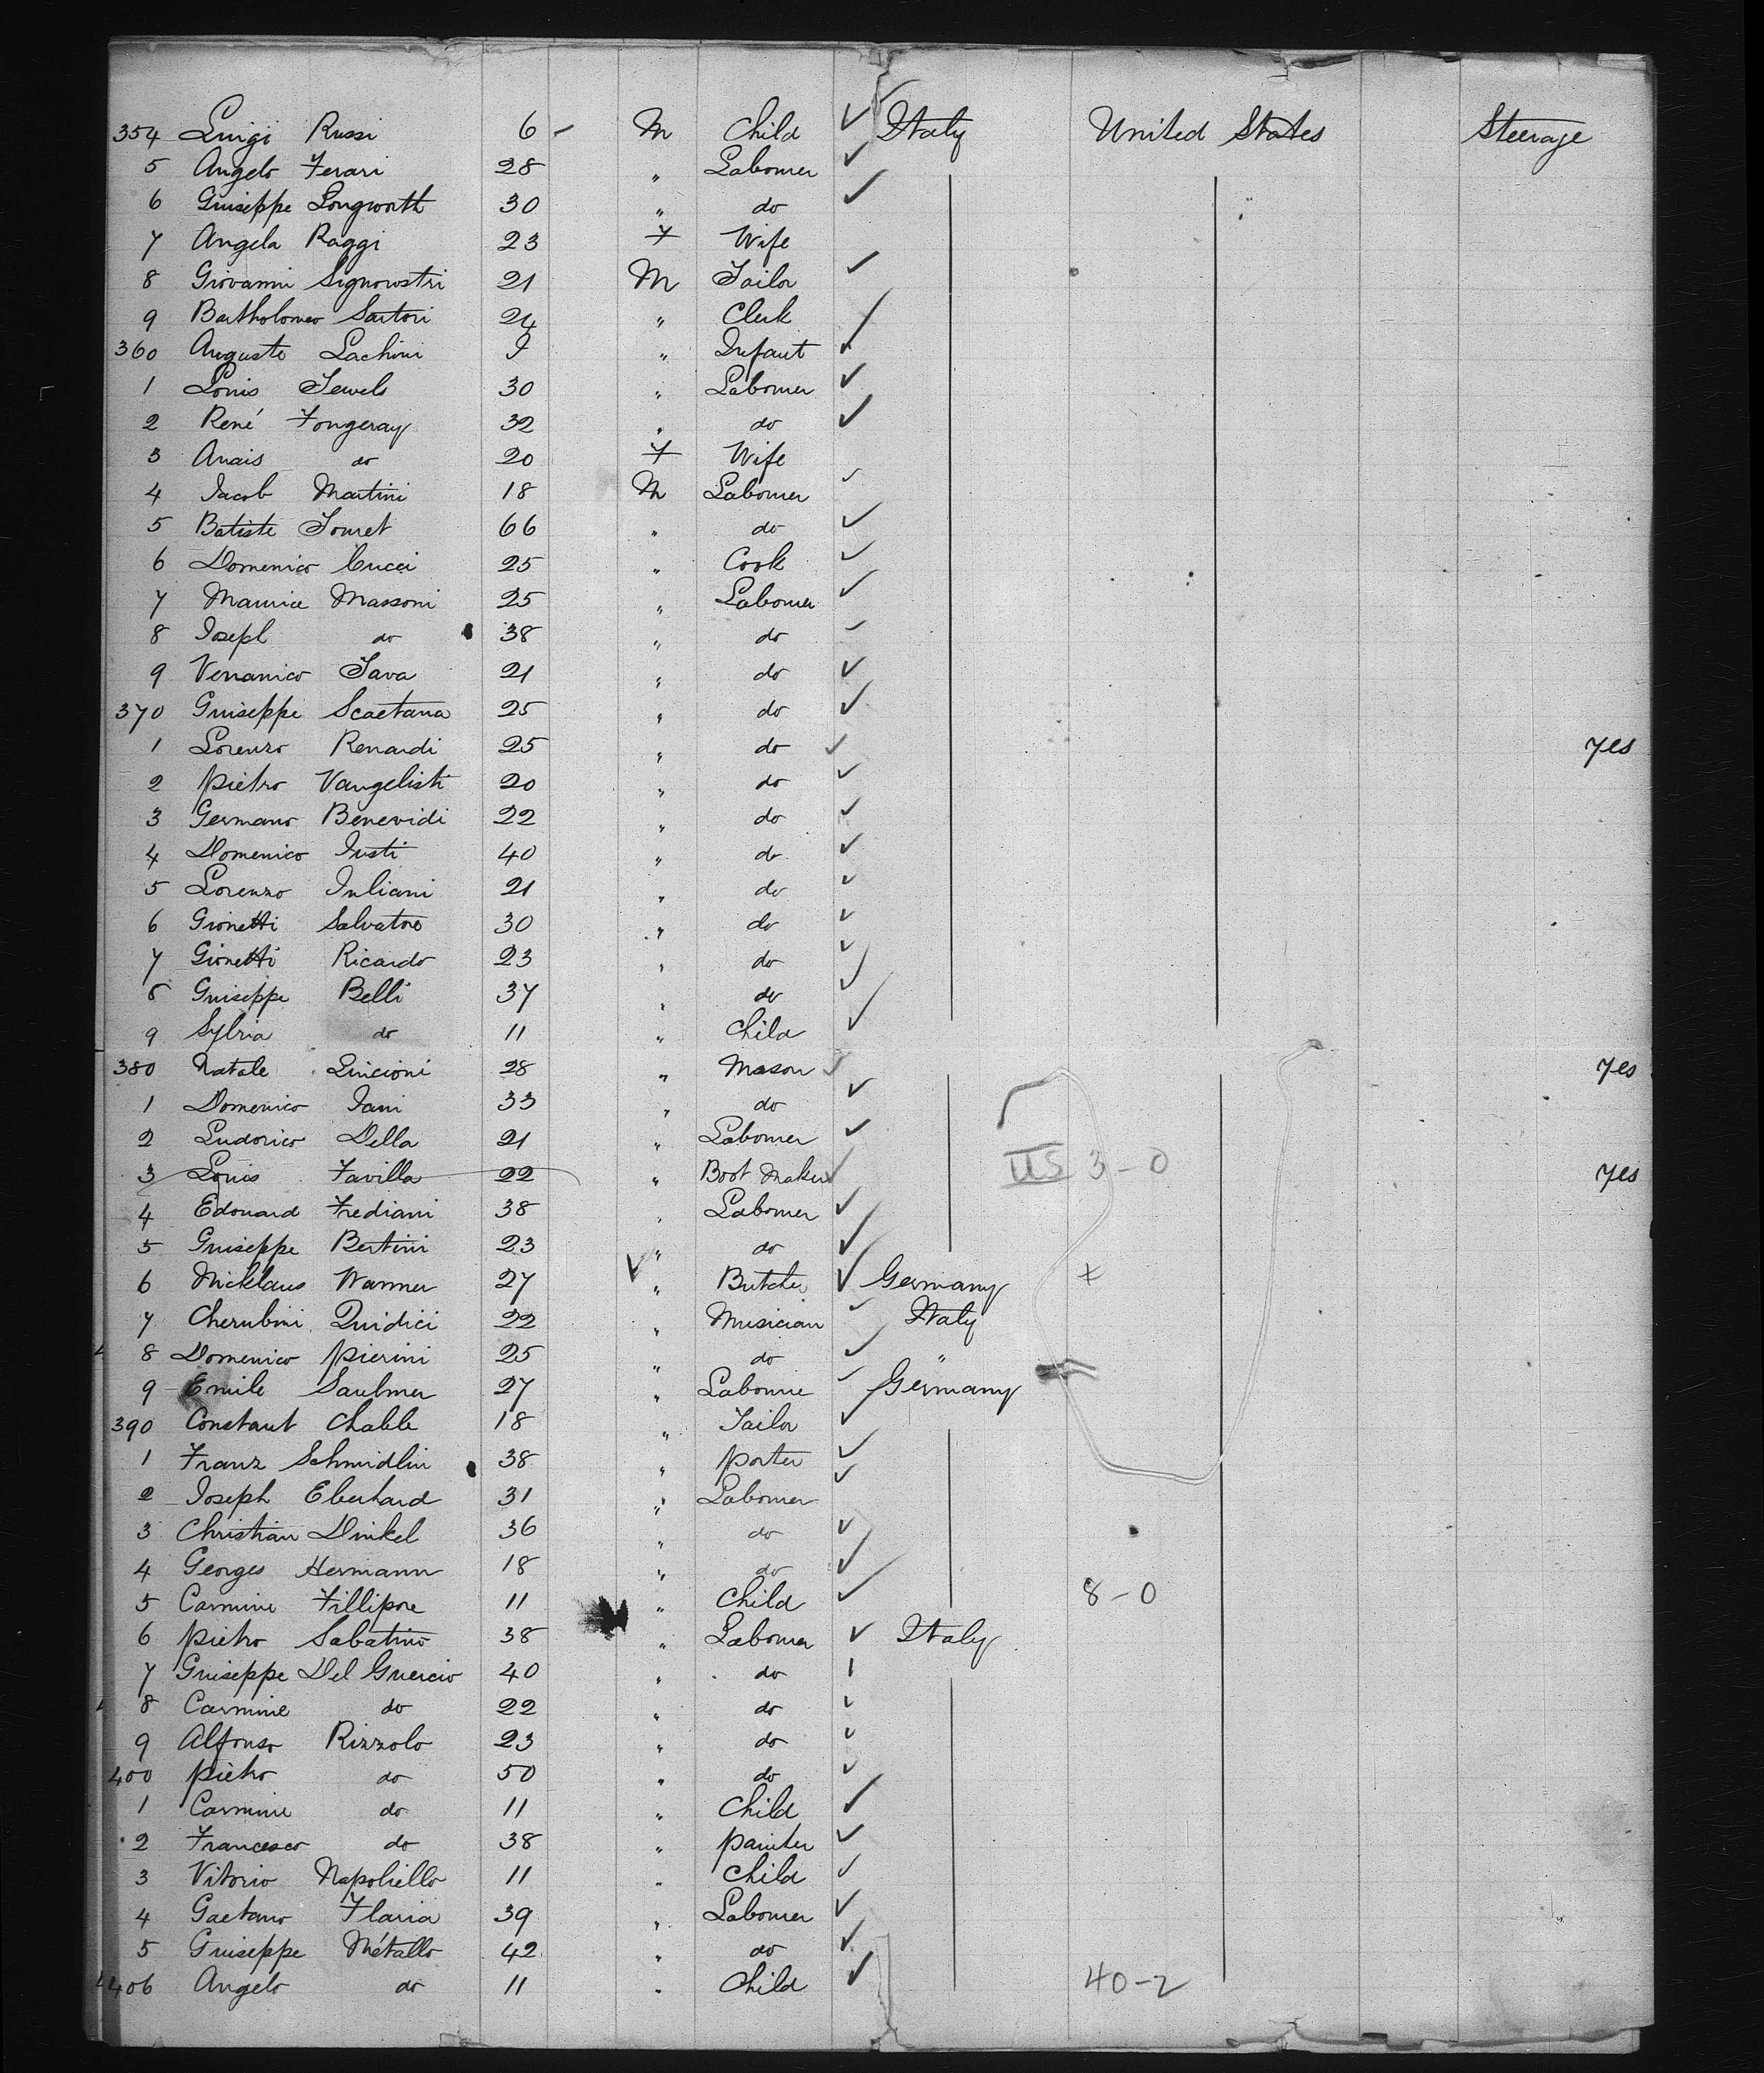 354 Luigi Russi 6 - M Child ✓ Italy United States Steerage
5 Angelo Ferari 28 " Labourer ✓
6 Guiseppe Longworth 30 " do ✓
7 Angela Raggi 23 F Wife
8 Giovanni Signorostri 21 M Tailor ✓
9 Bartholomeo Sartori 24 " Clerk ✓
360 Auguste Lachini I " Infant ✓
1 Louis Jewels 30 " Labourer ✓
2 René Fongeray 32 " do ✓
3 Anais do 20 F Wife
4 Jacob Martini 18 M Labourer ✓
5 Batiste Jouret 66 " do ✓
6 Domenico Cucci 25 " Cook ✓
7 Maurice Massoni 25 " Labourer ✓
8 Joseph do 38 " do ✓
9 Venanico Java 21 " do ✓
370 Guiseppe Scaetana 25 " do ✓
1 Lorenzo Renardi 25 " do ✓ yes
2 Pietro Vangelisti 20 " do ✓
3 Germano Benevidi 22 " do ✓
4 Domenico Justi 40 " do ✓
5 Lorenzo Juliani 21 " do ✓
6 Gionetti Salvatore 30 " do ✓
7 Gionetti Ricardo 23 " do ✓
8 Guiseppe Belli 37 " do ✓
9 Sylvia do 11 " Child ✓
380 Natale Lincioni 28 " Mason ✓ yes
1 Domenico Jani 33 " do ✓
2 Ludovico Della 21 " Labourer ✓
3 Louis Favilla 22 " Boot Maker ✓ US 3-0 yes
4 Edouard Frediani 38 " Labourer ✓
5 Guiseppe Bertini 23 " do ✓
6 Nicklaus Wanner 27 ✓ " Butcher ✓ Germany x
7 Cherubini Quidici 22 " Musician ✓ Italy
8 Domenico Pierini 25 " do ✓ "
9 Emile Saulmer 27 " Labourie ✓ Germany
390 Constant Chable 18 " Tailor ✓
1 Franz Schmidlin 38 " Porter ✓
2 Joseph Eberhard 31 " Labourer ✓
3 Christian Dinkel 36 " do ✓
4 Georges Hermann 18 " do ✓
5 Carmine Fillipone 11 " Child ✓ 8-0
6 Pietro Sabatino 38 " Labourer ✓ Italy
7 Guiseppe Del Guercio 40 " do ✓
8 Carmine do 22 " do ✓
9 Alfonso Rizzolo 23 " do ✓
400 Pietro do 50 " do ✓
1 Carmine do 11 " Child ✓
2 Francesco do 38 " Painter ✓
3 Vitorio Napoliello 11 " Child ✓
4 Gaetano Ilaria 39 " Labourer ✓
5 Guiseppe Métallo 42 " do ✓
406 Angelo do 11 " Child ✓ 40-2